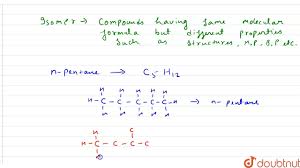 Isomer → Compounds having same molecular
formula but different properties
such as structures, M.P, B.P etc.
n-pentane → C5-H12
H H H H H
H-C-C-C-C-C-H → n-pentane
H H H H H
H C
H-C-C-C-C
H
doubtnut